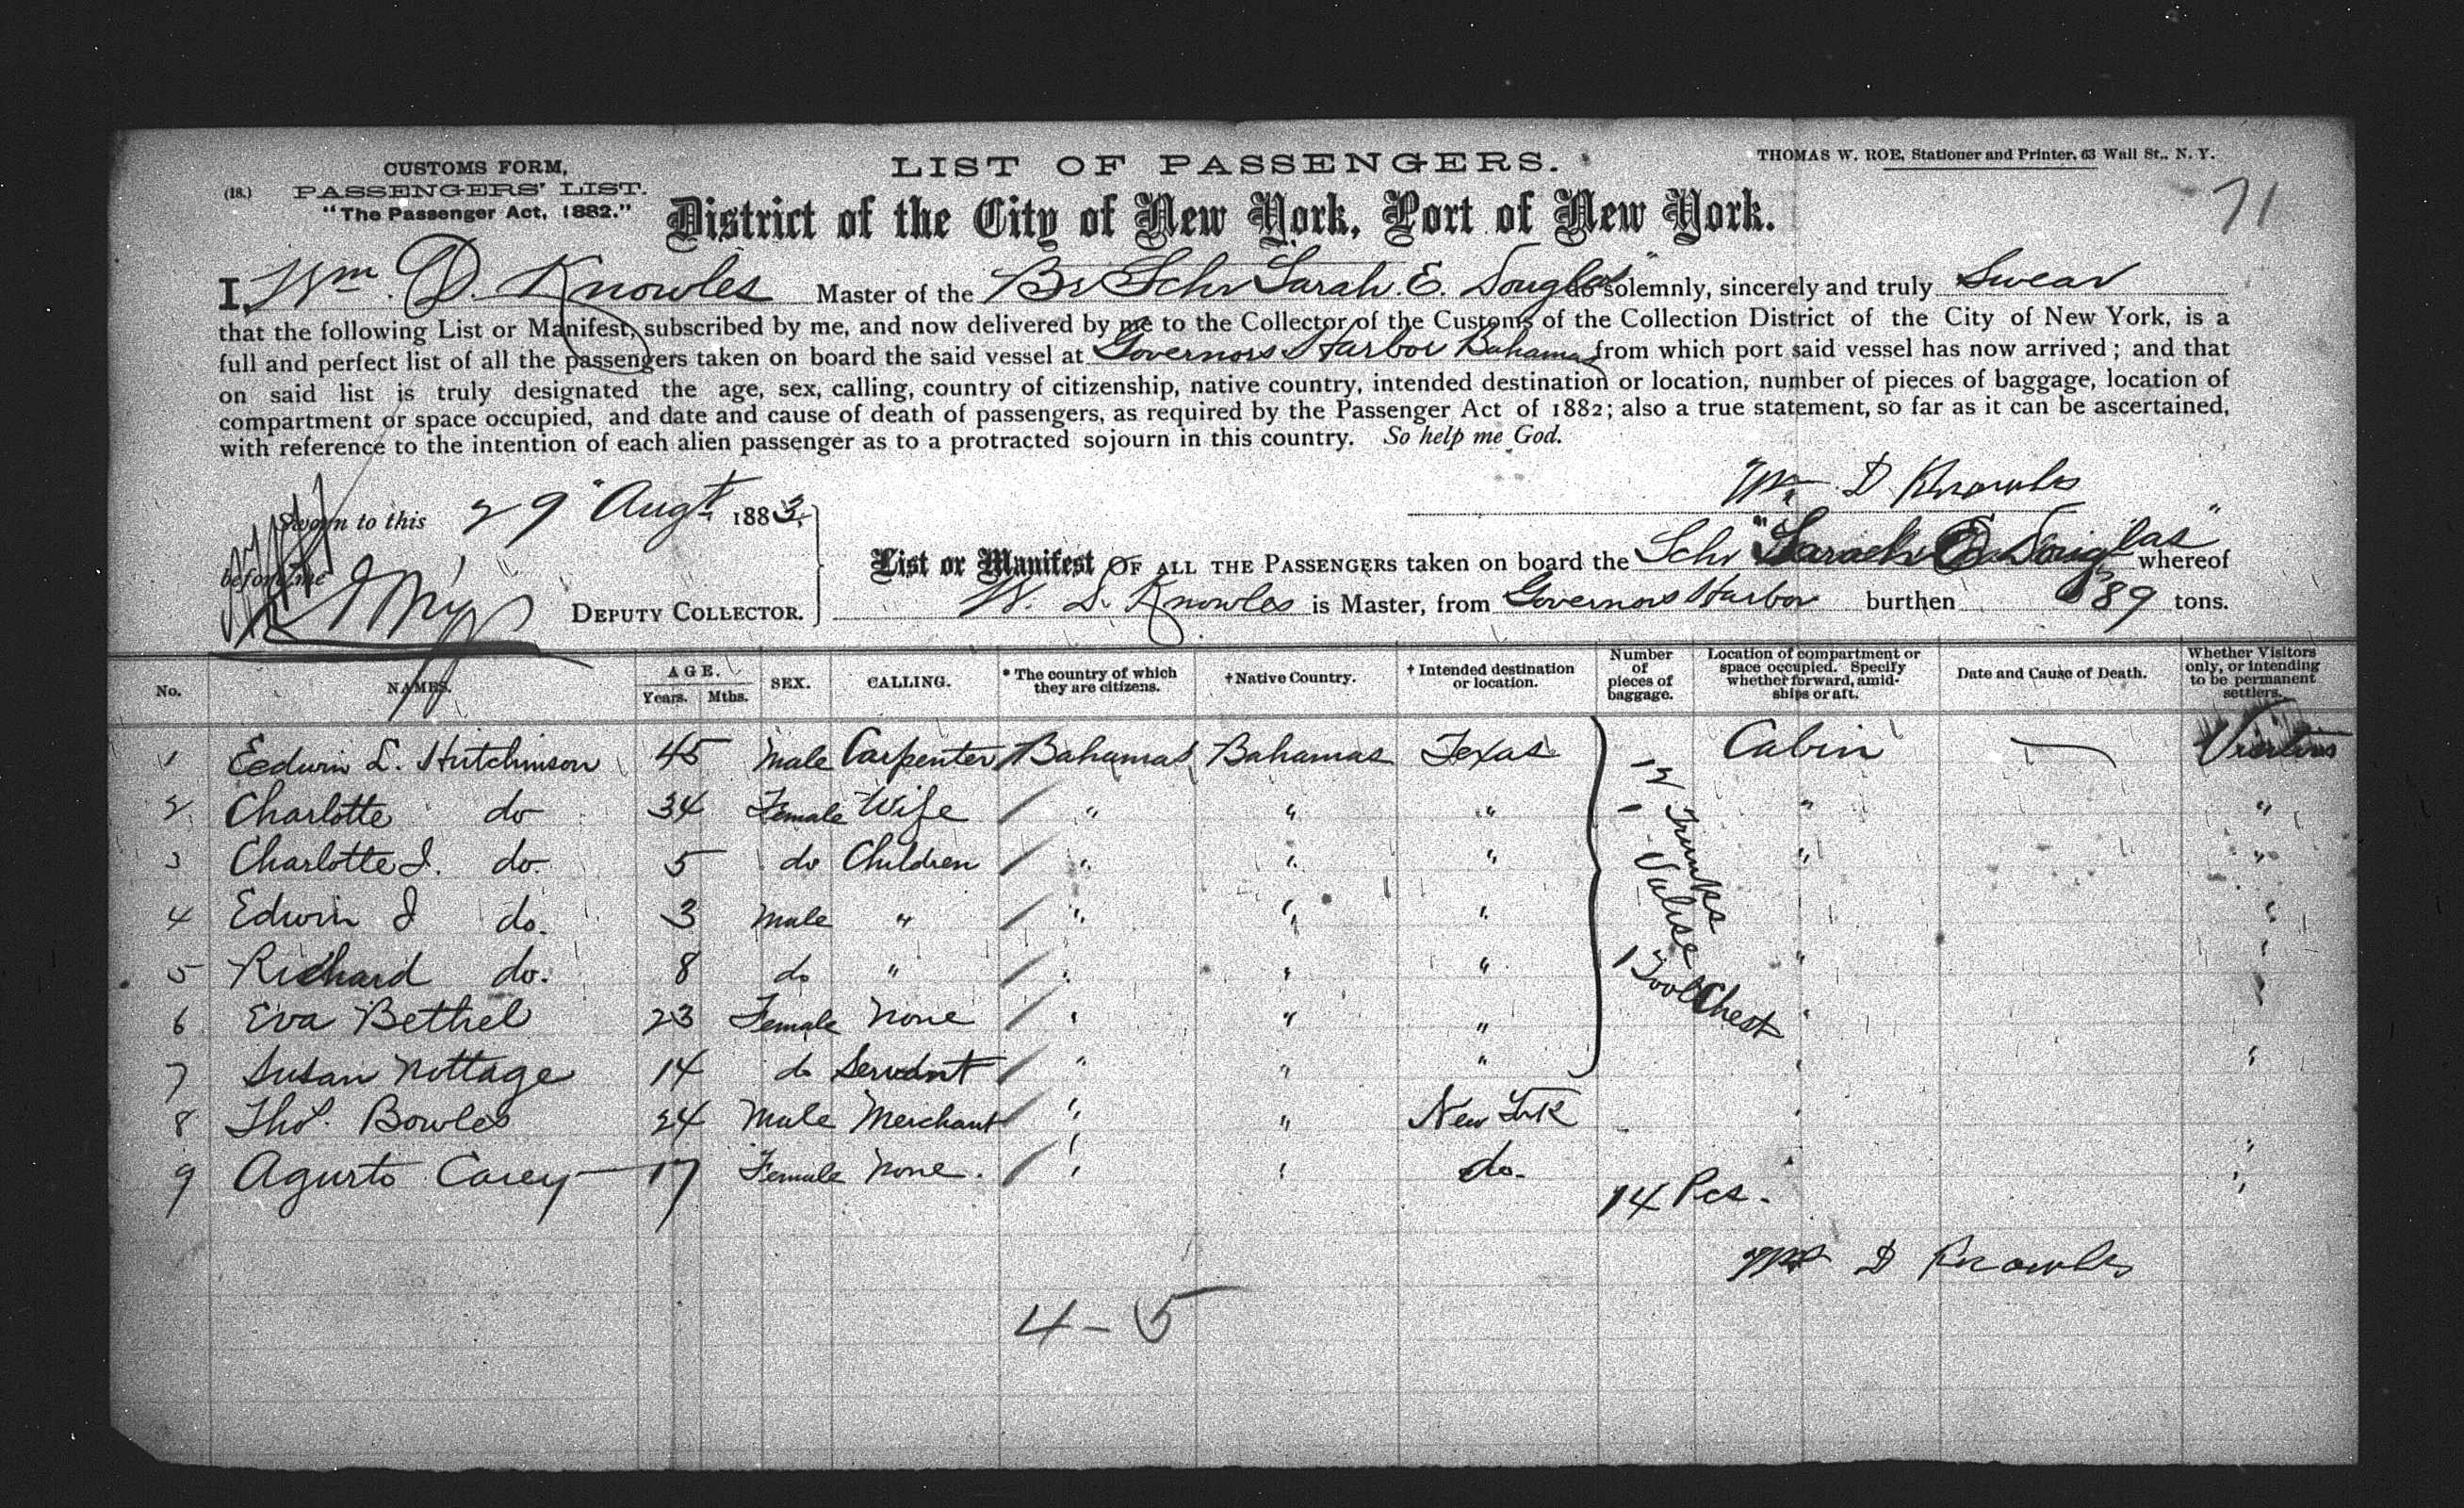 CUSTOMS FORM,
(18.) PASSENGERS' LIST.
"The Passenger Act, 1882."
LIST OF PASSENGERS.
THOMAS W. ROE, Stationer and Printer, 63 Wall St., N. Y.
71
District of the City of New York, Port of New York.
I, Wm. D. Knowles Master of the Br Schr Sarah. E. Douglas do solemnly, sincerely and truly Swear
that the following List or Manifest, subscribed by me, and now delivered by me to the Collector of the Customs of the Collection District of the City of New York, is a
full and perfect list of all the passengers taken on board the said vessel at Governors Harbor Bahamas from which port said vessel has now arrived; and that
on said list is truly designated the age, sex, calling, country of citizenship, native country, intended destination or location, number of pieces of baggage, location of
compartment or space occupied, and date and cause of death of passengers, as required by the Passenger Act of 1882; also a true statement, so far as it can be ascertained,
with reference to the intention of each alien passenger as to a protracted sojourn in this country. So help me God.
Wm D Knowles
Sworn to this 29" Augt 1883.
before me
DEPUTY COLLECTOR.
List or Manifest OF ALL THE PASSENGERS taken on board the Schr "Sarah E Douglas" whereof
W. D. Knowles is Master, from Governors Harbor burthen 89 tons.
No. NAMES. AGE. Years. Mths. SEX. CALLING. * The country of which they are citizens. † Native Country. † Intended destination or location. Number of pieces of baggage. Location of compartment or space occupied. Specify whether forward, amidships or aft. Date and Cause of Death. Whether Visitors only, or intending to be permanent settlers.
1 Eedwin L. Hutchinson 45 Male Carpenter Bahamas Bahamas Texas Cabin —
2 Charlotte do 34 Female Wife " " " " "
3 Charlotte J. do. 5 do Children " " " " "
4 Edwin J do. 3 Male " " " " "
5 Richard do. 8 do " " " " " "
6 Eva Bethel 23 Female None " " " " "
7 Susan Nottage 14 do Servant " " " " "
8 Thos. Bowles 24 Male Merchant " " New York " "
9 Agusto Carey 17 Female None. " " do. " "
12 Trunks
1 Valise
1 Tool Chest
14 Pcs.
Wm D Knowles
4 - 5